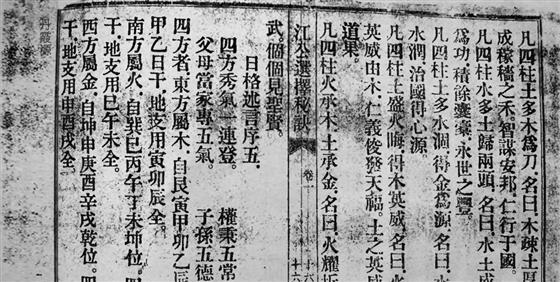 凡四柱土多木爲刀.名曰.木疎土厚
成稼穡之禾.智謀安邦.仁行于國.
凡四柱水多土歸兩頭.名曰.水土成
爲功.積餘囊槖.永世之豐.
凡四柱土多水涸.得金爲源.名曰.
水潤.治國得心源.
凡四柱土盛火晦.得木英威.名曰.火
英威由木.仁義俊發天福.土之英威
道果.
凡四柱火承木.土承金.名曰.火耀
江公選擇秘訣 卷一 十六
武.個個見聖賢.
日格述言序五.
四方秀氣一連登. 權秉五常
父母當家專五氣. 子孫五德
四方者.東方屬木.自艮寅甲卯乙辰
甲乙日干.地支用寅卯辰全.
南方屬火.自巽巳丙午丁未坤位.四
干.地支用巳午未全.
西方屬金.自坤申庚酉辛戌乾位.四
干.地支用申酉戌全.